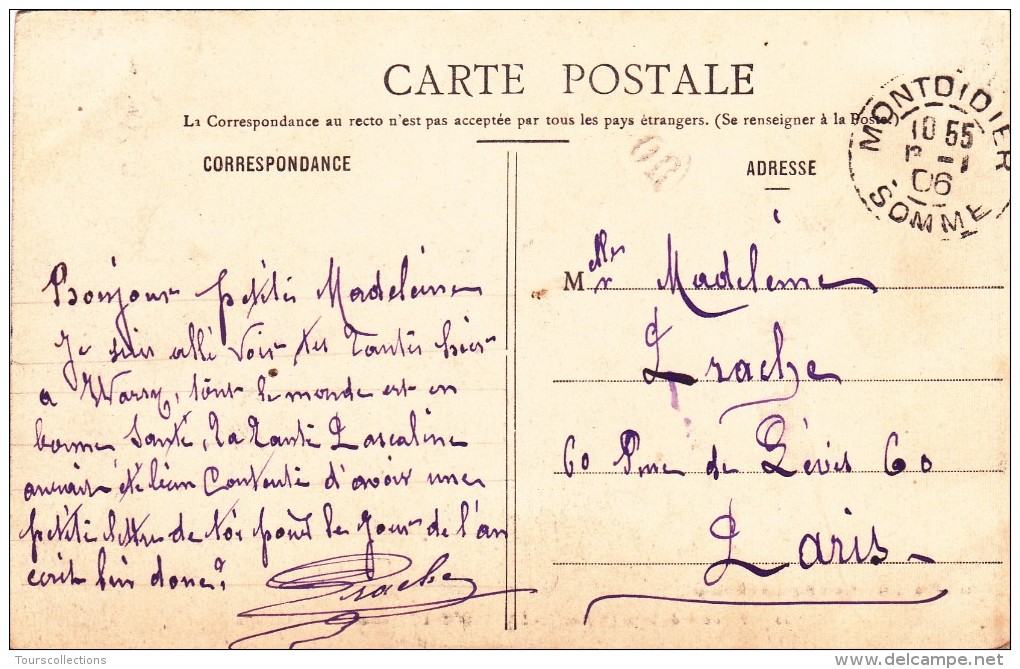 CARTE POSTALE
La Correspondance au recto n'est pas acceptée par tous les pays étrangers. (Se renseigner à la Poste)
CORRESPONDANCE
ADRESSE
MONTDIDIER
10 55
06
SOMME
OR
Bonjour petite Madeleine
Je suis allé voir tes tantes hier
a Warsy, tout le monde est en
bonne santé, ta tante Pascaline
aurait été bien contente d'avoir une
petite lettre de toi pour le jour de l'an
écrit lui donc.
Prache
Mlle Madeleine
Prache
60 Rue de Lévis 60
Paris
Tourscollections
www.delcampe.net